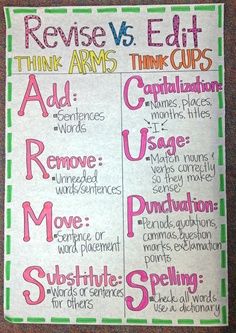 Revise Vs. Edit
THINK ARMS THINK CUPS
Add:
Sentences
Words
Remove:
Unneeded
words/sentences
Move:
Sentence or
word placement
Substitute:
Words or sentences
for others
Capitalization:
Names, places,
months, titles,
"I"
Usage:
Match nouns &
verbs correctly
so they make
sense
Punctuation:
Periods, quotations,
commas, question
marks, exclamation
points
Spelling:
Check all words
use a dictionary